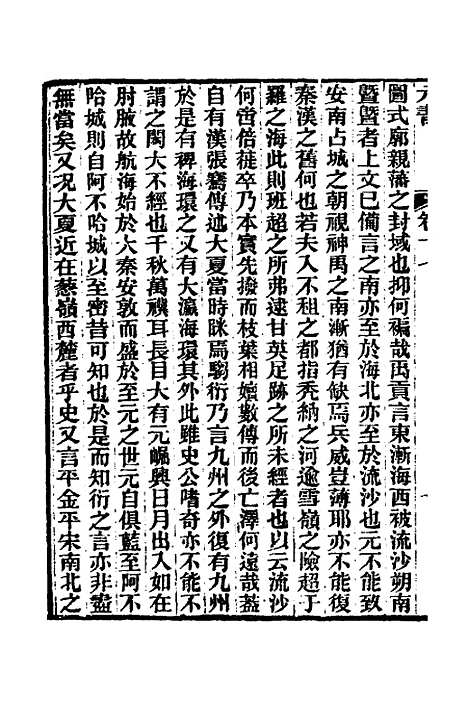 元書 卷十七
圖式廓親藩之封域也抑何褊哉禹貢言東漸海西被流沙朔南
暨暨者上文已備言之南亦至於海北亦至於流沙也元不能致
安南占城之朝視神禹之南漸猶有缺焉兵威豈薄耶亦不能復
秦漢之舊何也若夫入不租之都指禿納之河逾雪嶺之險超于
羅之海此則班超之所弗逮甘英足跡之所未經者也以云流沙
何啻倍蓰卒乃本實先撥而枝葉相嬗數傳而後亡澤何遠哉蓋
自有漢張騫傳述大夏當時眯焉騶衍乃言九州之外復有九州
於是有裨海環之又有大瀛海環其外此雖史公嗜奇亦不能不
謂之閎大不經也千秋萬禩耳長目大有元崛興日月出入如在
肘腋故航海始於大秦安敦而盛於至元之世元自俱藍至阿不
哈城則自阿不哈城以至密昔可知也於是而知衍之言亦非盡
無當矣又况大夏近在蔥嶺西麓者乎史又言平金平宋南北之